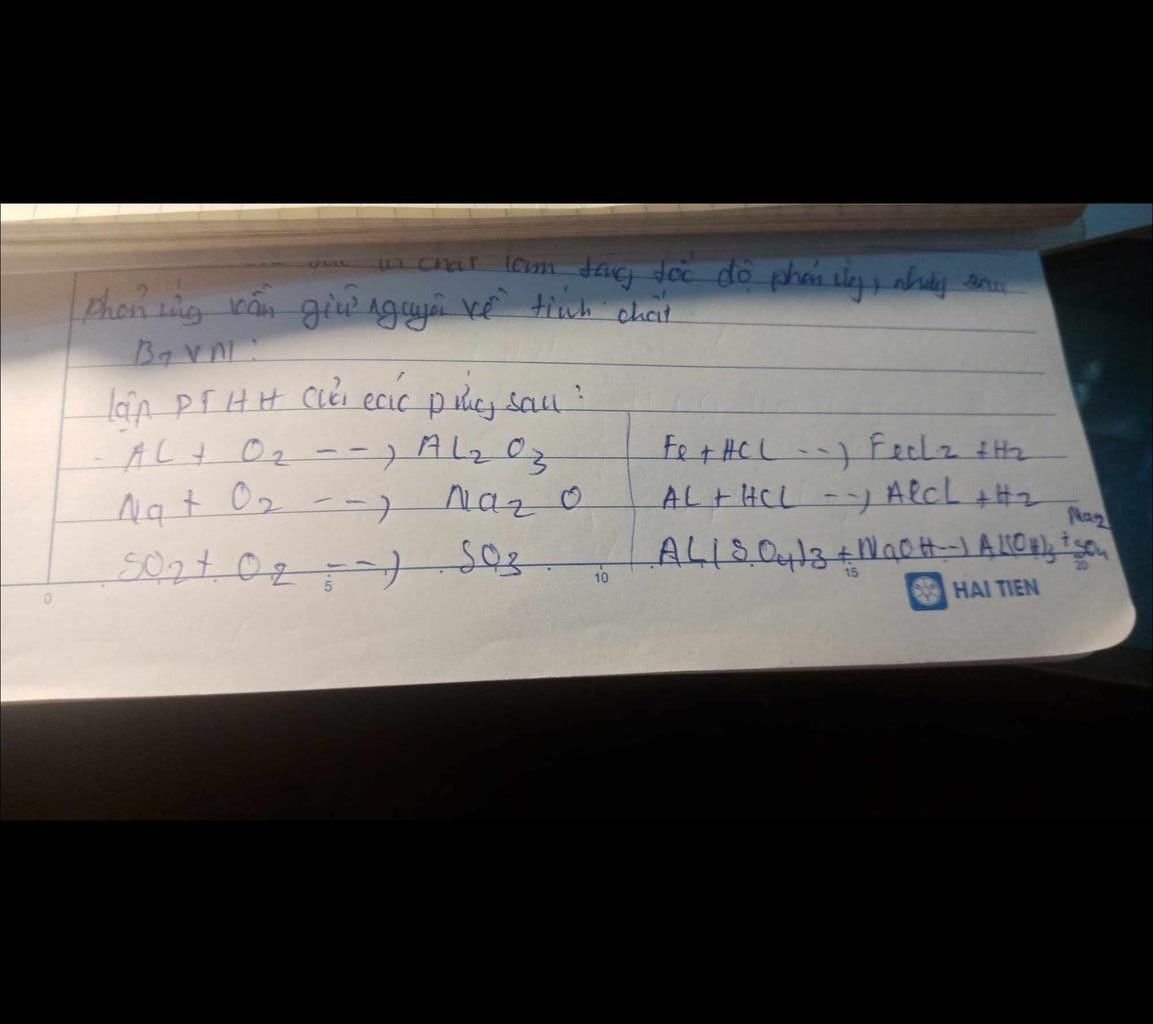 chất làm tăng tốc độ phản ứng, nhưng sau
phản ứng vẫn giữ nguyên về tính chất
BTVN:
lập PTHH của các p ứng sau:
AL + O2 --> AL2O3
Na + O2 --> Na2O
SO2 + O2 --> SO3
Fe + HCL --> FeCL2 + H2
AL + HCL --> AlCL + H2
AL(SO4)3 + NaOH --> AL(OH)3 + Na2SO4
0 5 10 15 20
HAI TIEN